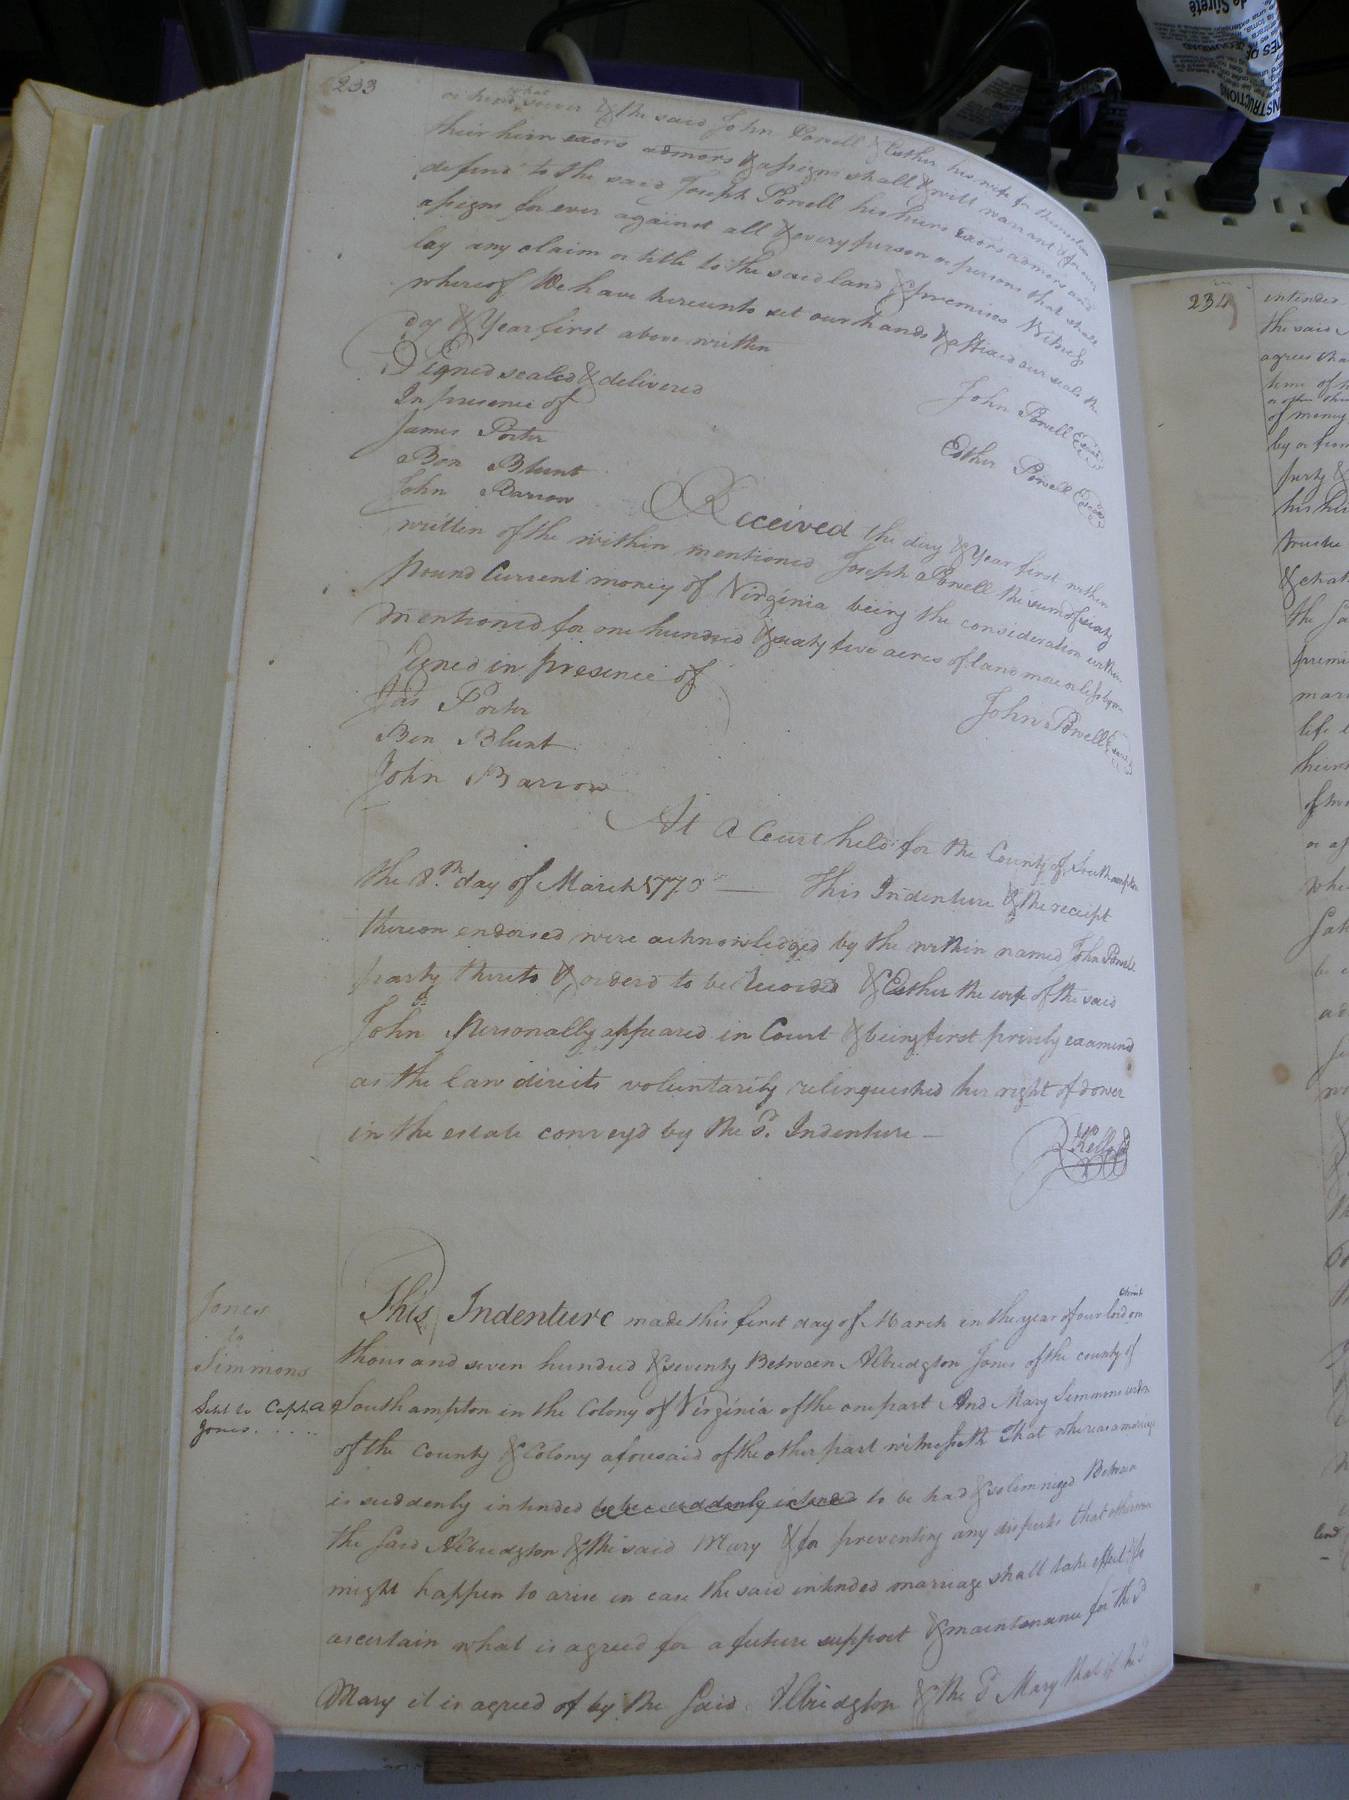 233
or kind what soever & the said John Powell & Esther his wife for themselves
their heirs exors admors & assigns shall & will warrant & for ever
defend to the said Joseph Powell his heirs exors admors and
assigns for ever against all & every person or persons that shall
lay any claim or title to the said land & premises Witness
whereof We have hereunto set our hands & affixed our seals the
day & Year first above written
Signed sealed & delivered
In presence of
John Powell
James Porter
Esther Powell
Ben Blunt
John Barrow
Received the day & Year first within
written of the within mentioned Joseph Powell the sum of sixty
pound Current money of Virginia being the consideration within
mentioned for one hundred & sixty five acres of land more or less
Signed in presence of
Jas Porter
John Powell
Ben Blunt
John Barrow
At a Court held for the County of Southampton
the 8th day of March 1770 — This Indenture & the receipt
thereon endorsed were acknowledged by the within named John Powell
party thereto & orderd to be Recorded & Esther the wife of the said
John Personally appeared in Court & being first privily examined
as the Law directs voluntarily relinquished her right of dower
in the estate convey'd by the sd. Indenture —
Jones
to
Simmons
Deld to Capt. A
Jones.....
This Indenture made this first day of March in the year of our lord Christ one
thousand seven hundred & seventy Between Albridgton Jones of the county of
Southampton in the Colony of Virginia of the one part And Mary Simmons widow
of the County & Colony aforesaid of the other part witnesseth That whereas a marriage
is suddenly intended to be suddenly intended to be had & solemnized Between
the said Albridgton & the said Mary & for preventing any disputes that otherwise
might happen to arise in case the said intended marriage shall take effect & to
ascertain what is agreed for a future support & maintenance for the sd
Mary it is agreed of by the Said Albridgton & the sd Mary that if he
234
intended
the said
agrees that
time of
of money
by or from
party &
his
the
premi
marr
life
heirs
or